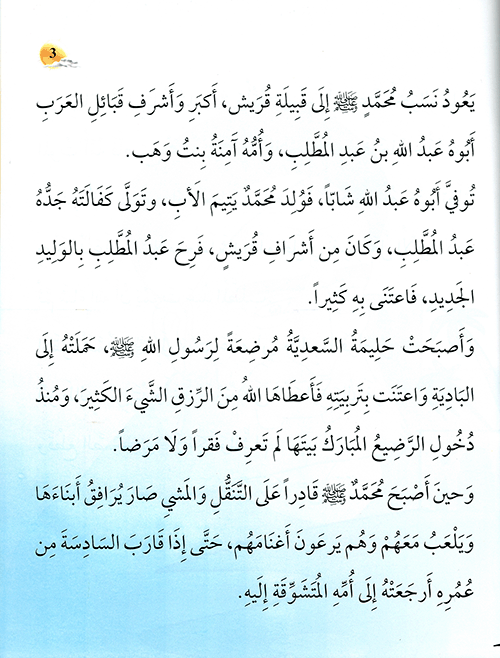 3
يَعُودُ نَسَبُ مُحَمَّدٍ ﷺ إِلَى قَبِيلَةِ قُرَيش، أَكبَرِ وَأَشرَفِ قَبَائِلِ العَرَبِ
أَبُوهُ عَبدُ اللهِ بنُ عَبدِ المُطَّلِبِ، وَأُمُّهُ آمِنَةُ بِنتُ وَهَب.
تُوفيَّ أَبُوهُ عَبدُ اللهِ شَابّاً، فَوُلِدَ مُحَمَّدٌ يَتِيمَ الأَبِ، وتَوَلَّى كَفَالَتَهُ جَدُّهُ
عَبدُ المُطَّلِبِ، وَكَانَ مِن أَشرَافِ قُرَيشٍ، فَرِحَ عَبدُ المُطَّلِبِ بِالوَلِيدِ
الجَدِيدِ، فَاعتَنَى بِهِ كَثِيراً.
وَأَصبَحَتْ حَلِيمَةُ السَّعدِيَّةُ مُرضِعَةً لِرَسُولِ اللهِ ﷺ، حَمَلَتْهُ إِلَى
البَادِيَةِ وَاعتَنَت بِتَربِيَتِهِ فَأَعطَاهَا اللهُ مِنَ الرِّزقِ الشَّيءَ الكَثِيرَ، وَمُنذُ
دُخُولِ الرَّضِيعُ المُبَارَكُ بَيتَهَا لَم تَعرِفْ فَقراً وَلَا مَرَضاً.
وَحينَ أَصْبَحَ مُحَمَّدٌ ﷺ قَادِراً عَلَى التَّنَقُّلِ وَالمَشيِ صَارَ يُرَافِقُ أَبنَاءَهَا
وَيَلْعَبُ مَعَهُمْ وَهُم يَرعَونَ أَغنَامَهُم، حَتَّى إِذَا قَارَبَ السَادِسَةَ مِن
عُمُرِهِ أَرجَعَتْهُ إِلَى أُمِّهِ المُتَشَوِّقَةِ إِلَيهِ.